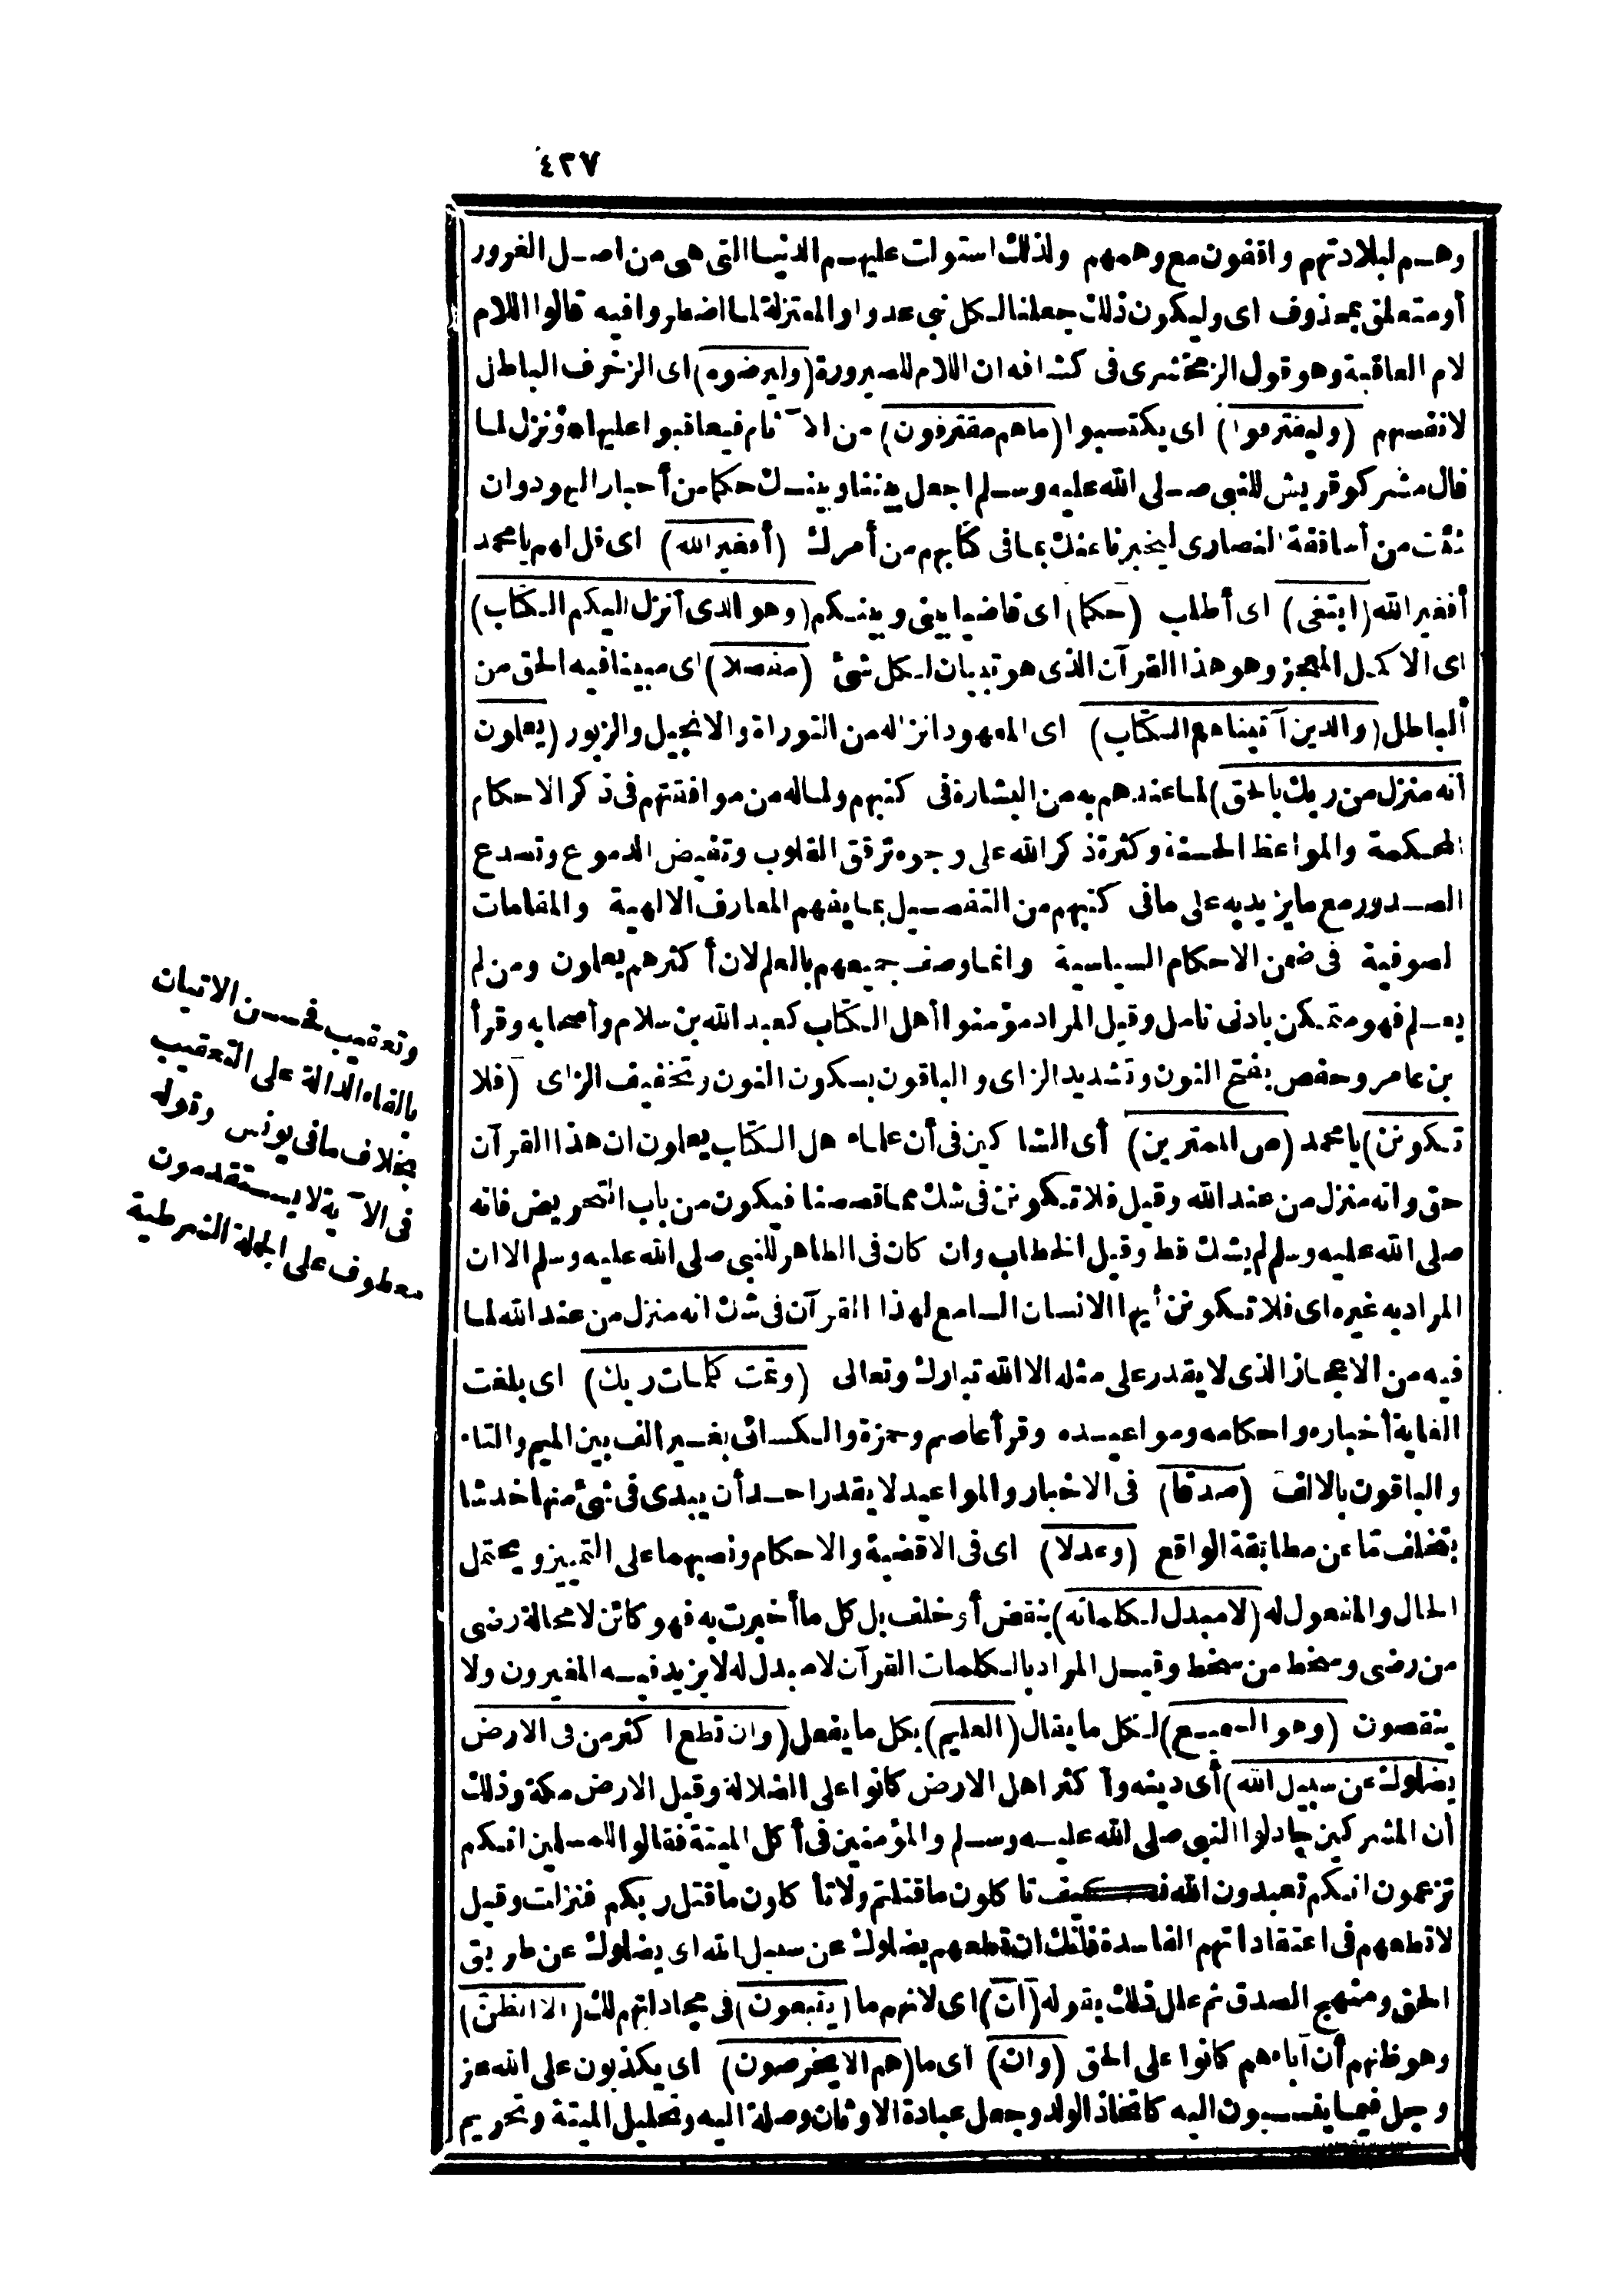 ٤٢٧
وهم لبلادتهم واقفون مع وهمهم ولذلك استولت عليهم الدنيا التى هى من اصل الغرور
أومتعلق بمحذوف اى وليكون ذلك جعلنا لكل نبى عدوا والمعتزلة لما اضطروا فيه قالوا اللام
لام العاقبة وهو قول الزمخشرى فى كشافه ان اللام للصيرورة (وليرضوه) اى الزخرف الباطل
لانفسهم (وليقترفوا) اى يكتسبوا (ماهم مقترفون) من الآثام فيعاقبوا عليها * ونزل لما
قال مشركو قريش للنبى صلى الله عليه وسلم اجعل بيننا وبينك حكما من أحبار اليهود وان
شئت من أساقفة النصارى ليخبرنا عنك بما فى كتابهم من أمرك (أفغير الله) اى قل لهم يا محمد
أفغير الله (ابتغى) اى أطلب (حكما) اى قاضيا بينى وبينكم (وهو الذى أنزل اليكم الكتاب)
اى الاكمل المعجز وهو هذا القرآن الذى هو تبيان لكل شئ (مفصلا) اى مبينا فيه الحق من
الباطل (والذين آتيناهم الكتاب) اى المعهود انزاله من التوراة والانجيل والزبور (يعلمون
أنه منزل من ربك بالحق) لما عندهم به من البشارة فى كتبهم ولماله من موافقتهم فى ذكر الاحكام
المحكمة والمواعظ الحسنة وكثرة ذكر الله على وجوه ترقق القلوب وتفيض الدموع وتصدع
الصدور مع ما يزيد به على ما فى كتبهم من التفصيل بما يفهم المعارف الالهية والمقامات
لصوفية فى ضمن الاحكام السياسية وانما وصف جميعهم بالعلم لان أكثرهم يعلمون ومن لم
يعلم فهو متمكن بادنى تامل وقيل المراد مؤمنوا أهل الكتاب كعبد الله بن سلام وأصحابه وقرأ
بن عامر وحفص بفتح النون وتشديد الزاى والباقون بسكون النون وتخفيف الزاى (فلا
تكونن) يا محمد (من الممترين) أى الشاكين فى أن علماء هل الكتاب يعلمون ان هذا القرآن
حق وانه منزل من عند الله وقيل فلا تكونن فى شك مما قصصنا فيكون من باب التحريض فانه
صلى الله عليه وسلم لم يشك قط وقيل الخطاب وان كان فى الظاهر للنبى صلى الله عليه وسلم الا ان
المراد به غيره اى فلا تكونن أيها الانسان السامع لهذا القرآن فى شك انه منزل من عند الله لما
فيه من الاعجاز الذى لا يقدر على مثله الا الله تبارك وتعالى (وتمت كلمات ربك) اى بلغت
الغاية أخباره واحكامه ومواعيده وقرأ عاصم وحمزة والكسائى بغير الف بين الميم والتاء
والباقون بالالف (صدقا) فى الاخبار والمواعيد لا يقدر احد أن يبدى فى شئ منها خدشا
بتخلف ما عن مطابقة الواقع (وعدلا) اى فى الاقضية والاحكام ونصبهما على التمييز ويحتمل
الحال والمفعول له (لا مبدل لكلماته) بنقض أو خلف بل كل ما أخبرت به فهو كائن لا محالة رضى
من رضى وسخط من سخط وقيل المراد بالكلمات القرآن لا مبدل له لا يزيد فيه المغيرون ولا
ينقصون (وهو السميع) لكل ما يقال (العليم) بكل ما يفعل (وان تطع اكثر من فى الارض
يضلوك عن سبيل الله) أى دينه وأكثر اهل الارض كانوا على الضلالة وقيل الارض مكة وذلك
أن المشركين جادلوا النبى صلى الله عليه وسلم والمؤمنين فى أكل الميتة فقالوا للمسلمين انكم
تزعمون انكم تعبدون الله فكيف تاكلون ما قتلتم ولا تأكلون ما قتل ربكم فنزلت وقيل
لا تطعهم فى اعتقاداتهم الفاسدة فانك ان تطعهم يضلوك عن سبيل الله اى يضلوك عن طريق
الحق ومنهج الصدق ثم علل ذلك بقوله (ان) اى لانهم ما (يتبعون) فى مجادلتهم لك (الا الظن)
وهو ظنهم أن آباءهم كانوا على الحق (وان) اى ما (هم الا يخرصون) اى يكذبون على الله عز
وجل فيما ينسبون اليه كاتخاذ الولد وجعل عبادة الاوثان وصلة اليه وتحليل الميتة وتحريم
وتعقيب فحسن الاتيان
بالفاء الدالة على التعقيب
بخلاف ما فى يونس وقوله
فى الآية لا يستقدمون
معطوف على الجملة الشرطية